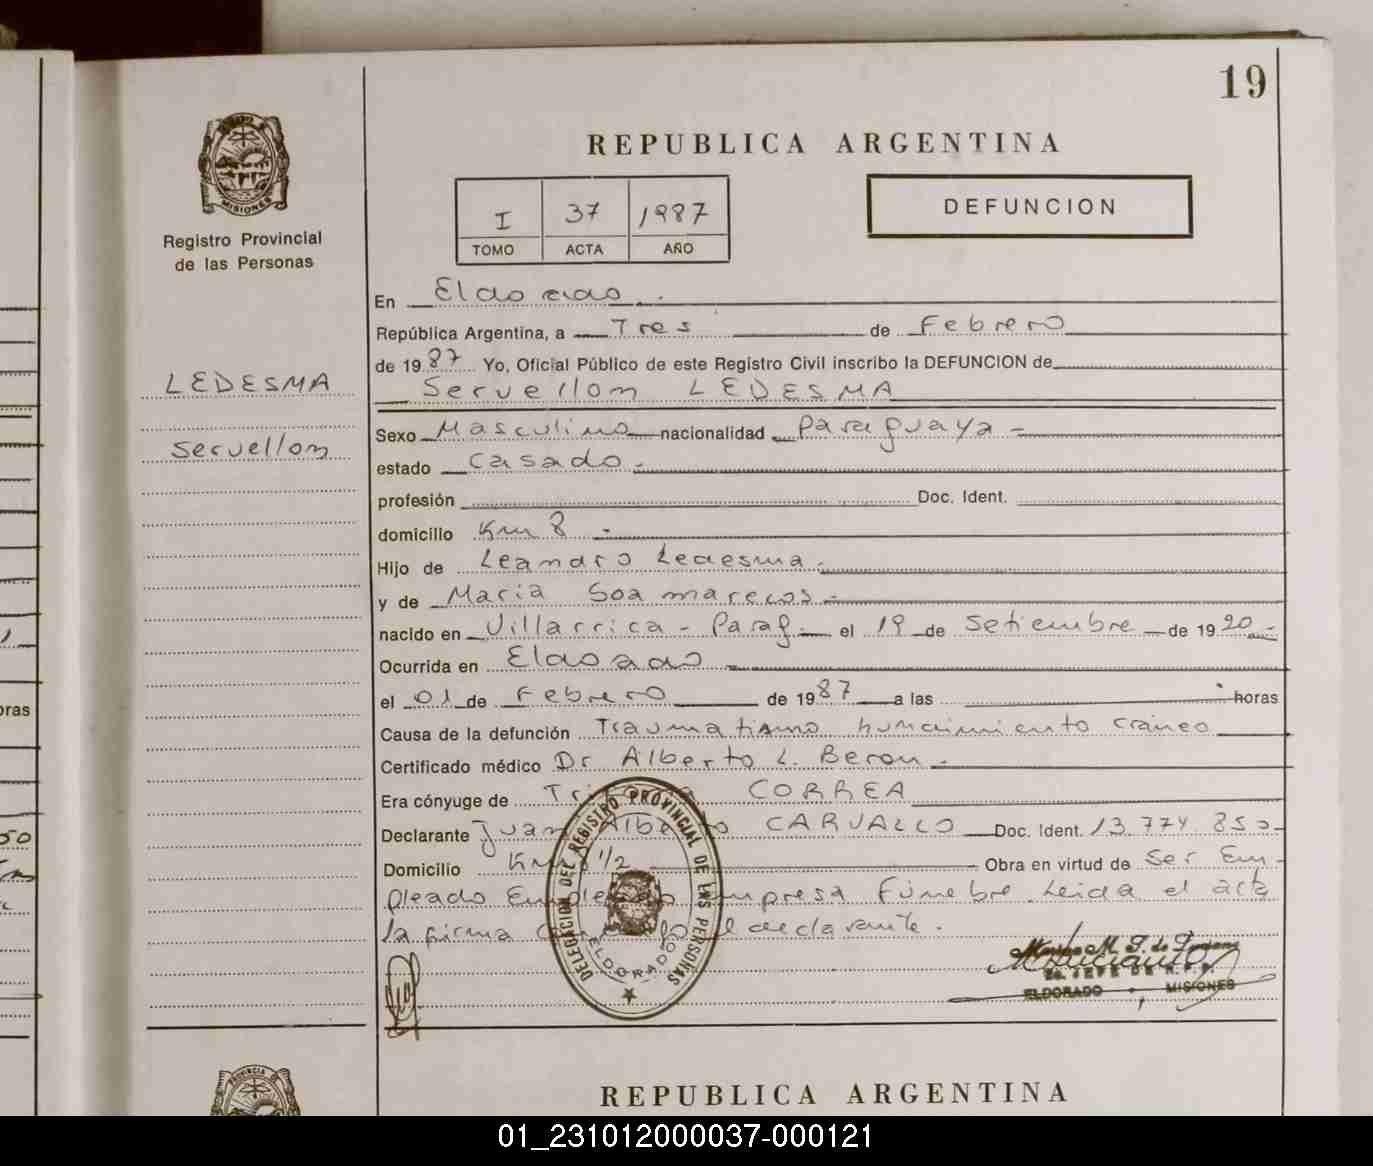 19
REPUBLICA ARGENTINA
MISIONES
Registro Provincial
de las Personas
I 37 1987
TOMO ACTA AÑO
DEFUNCION
En Eldorado
República Argentina, a Tres de Febrero
de 1987 Yo, Oficial Público de este Registro Civil inscribo la DEFUNCION de
LEDESMA
Servellom LEDESMA
Servellom
Sexo Masculino nacionalidad Paraguaya -
estado Casado -
profesión Doc. Ident.
domicilio Km 8 -
Hijo de Leandro Ledesma -
y de Maria Soa marecos -
nacido en Villarrica - Parag. el 19 de Setiembre de 1920 -
Ocurrida en Eldorado
el 01 de Febrero de 1987 a las horas
Causa de la defunción Traumatismo craneo
Certificado médico Dr Alberto L. Beron -
Era cónyuge de CORREA
Declarante Juan Alberto CARVALLO Doc. Ident. 13.774.850-
Domicilio Km 1/2 Obra en virtud de Ser Em-
pleado Empresa Fúnebre. Leida el acta
la firma el declarante.
DELEGACION DEL REGISTRO PROVINCIAL DE LAS PERSONAS
ELDORADO
ELDORADO - MISIONES
REPUBLICA ARGENTINA
01_231012000037-000121